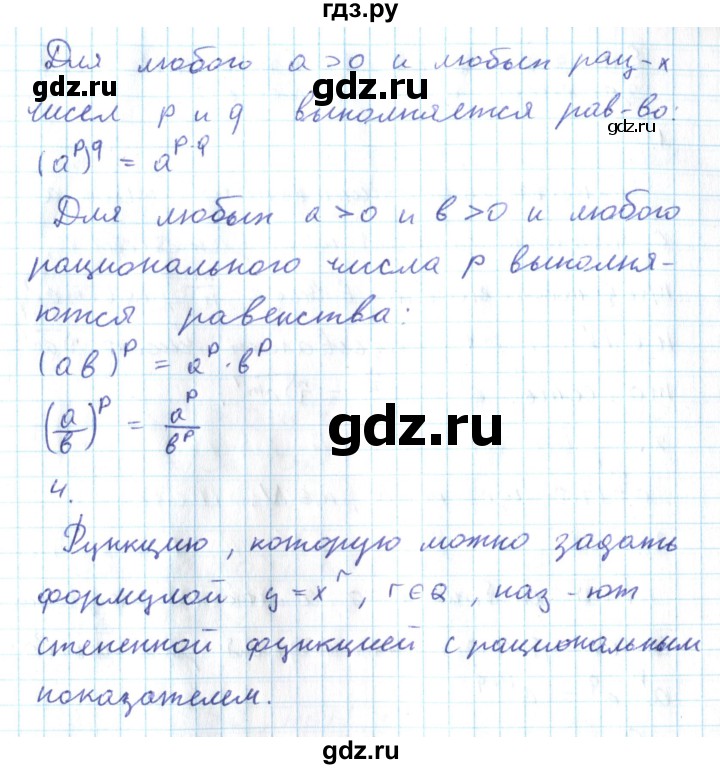 гдз.ру
Для любого a > 0 и любых рац-х
gdz.ru
gdz.ru
чисел p и q выполняется рав-во:
(a^p)^q = a^{p·q}
Для любых a > 0 и b > 0 и любого
рационального числа p выполня-
ются равенства:
(ab)^p = a^p · b^p
(a/b)^p = a^p/b^p
gdz.ru
4.
Функцию, которую можно задать
формулой y = x^r, r ∈ Q, наз-ют
степенной функцией с рациональным
показателем.
gdz.ru
gdz.ru